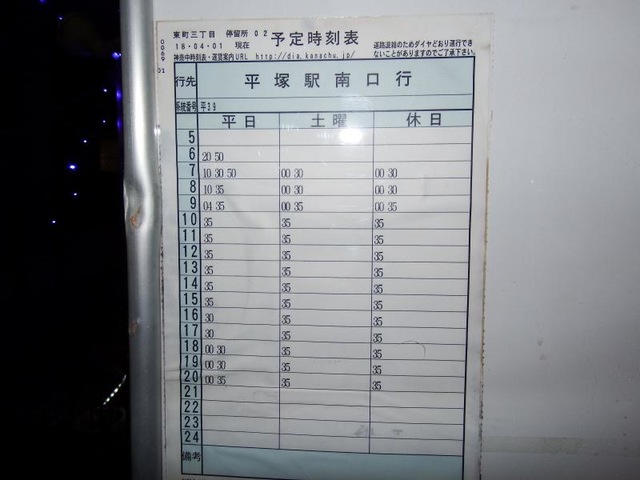 東町三丁目 停留所 02 予定時刻表
18・04・01 現在
神奈中時刻表・運賃案内URL http://dia.kanachu.jp/
道路混雑のためダイヤどおり運行でき
ないことがありますのでご了承下さい。
0069 02
行先 平塚駅南口行
系統番号 平39
平日 土曜 休日
5
6 20 50
7 10 30 50 00 30 00 30
8 10 35 00 30 00 30
9 04 35 00 35 00 35
10 35 35 35
11 35 35 35
12 35 35 35
13 35 35 35
14 35 35 35
15 35 35 35
16 30 35 35
17 30 35 35
18 00 30 35 35
19 00 30 35 35
20 00 35 35 35
21
22
23
24
備考